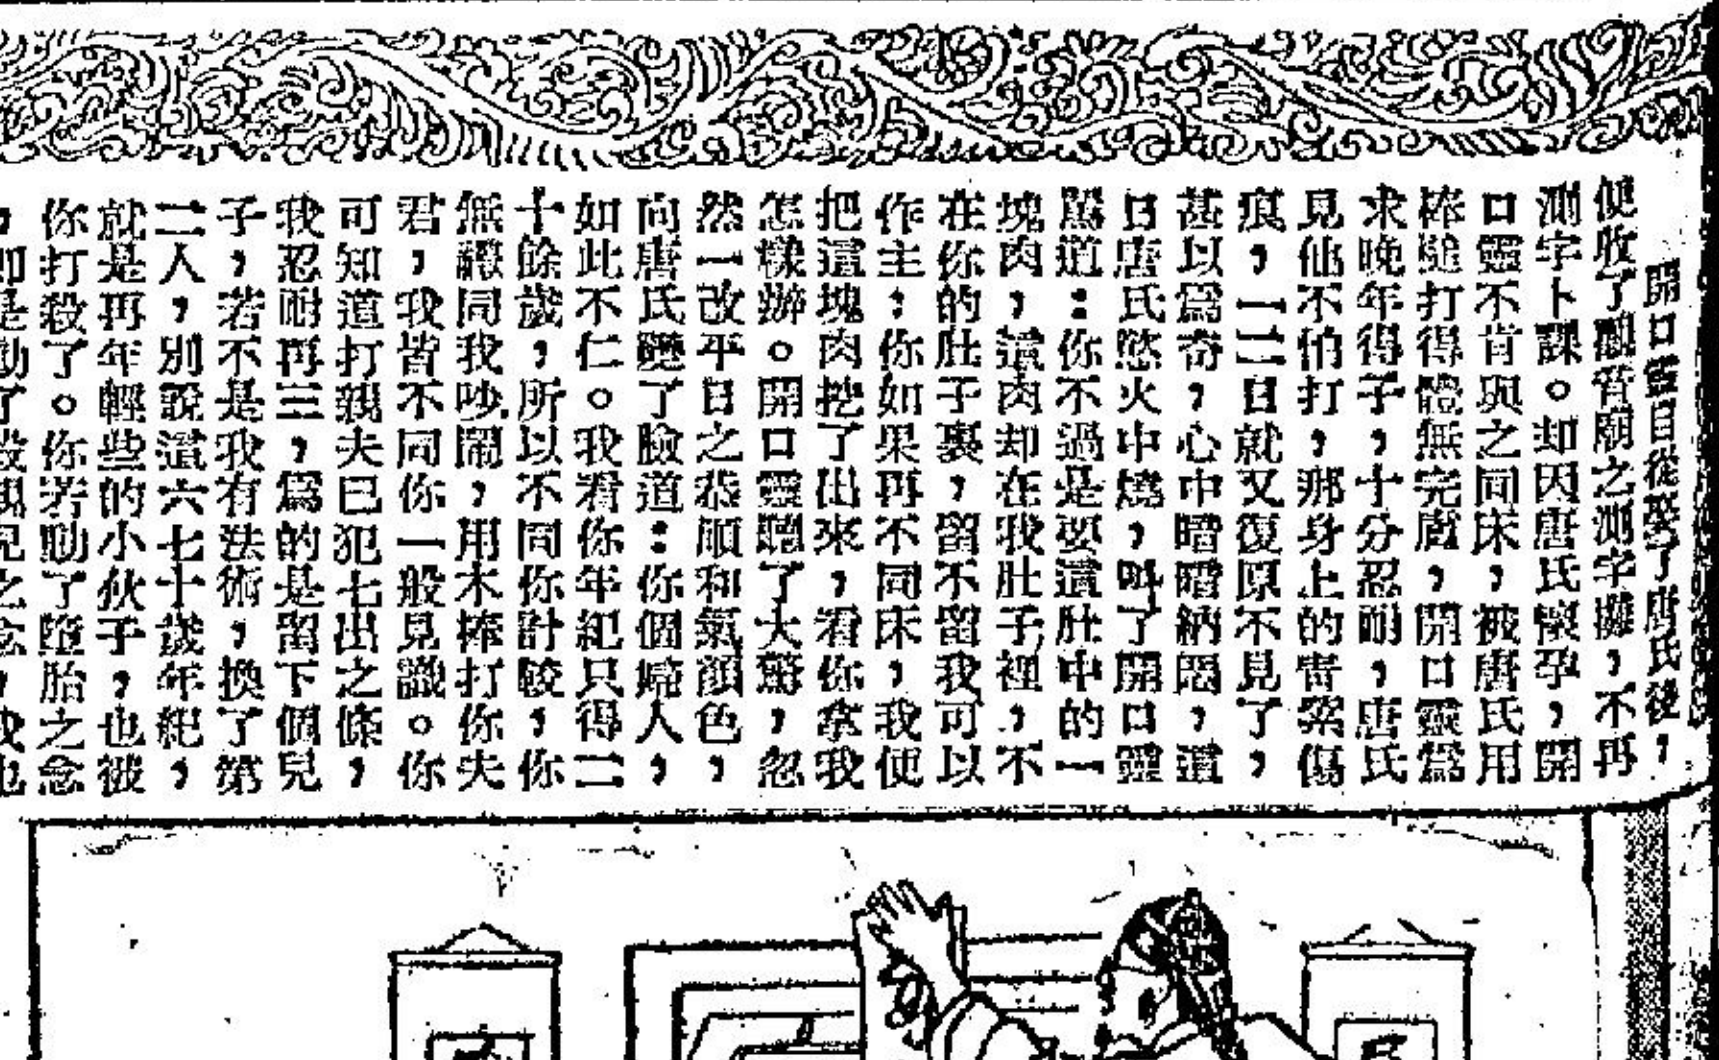 開口靈自從娶了唐氏後，
便收了關帝廟之測字攤，不再
測字卜課。却因唐氏懷孕，開
口靈不肯與之同床，被唐氏用
棒槌打得體無完膚，開口靈爲
求晚年得子，十分忍耐，唐氏
見他不怕打，那身上的青紫傷
痕，一二日就又復原不見了，
甚以爲奇，心中暗暗納悶，這
日唐氏慾火中燒，叫了開口靈
罵道：你不過是要這肚中的一
塊肉，這肉却在我肚子裡，不
在你的肚子裏，留不留我可以
作主；你如果再不同床，我便
把這塊肉挖了出來，看你拿我
怎樣辦。開口靈聽了大驚，忽
然一改平日之恭順和氣顏色，
向唐氏變了臉道：你個婦人，
如此不仁。我看你年紀只得二
十餘歲，所以不同你計較，你
無端同我吵鬧，用木棒打你夫
君，我皆不同你一般見識。你
可知道打親夫已犯七出之條，
我忍耐再三，爲的是留下個兒
子，若不是我有法術，換了第
二人，別說這六七十歲年紀，
就是再年輕些的小伙子，也被
你打殺了。你若動了墮胎之念
，即是動了殺親兒之念，我也